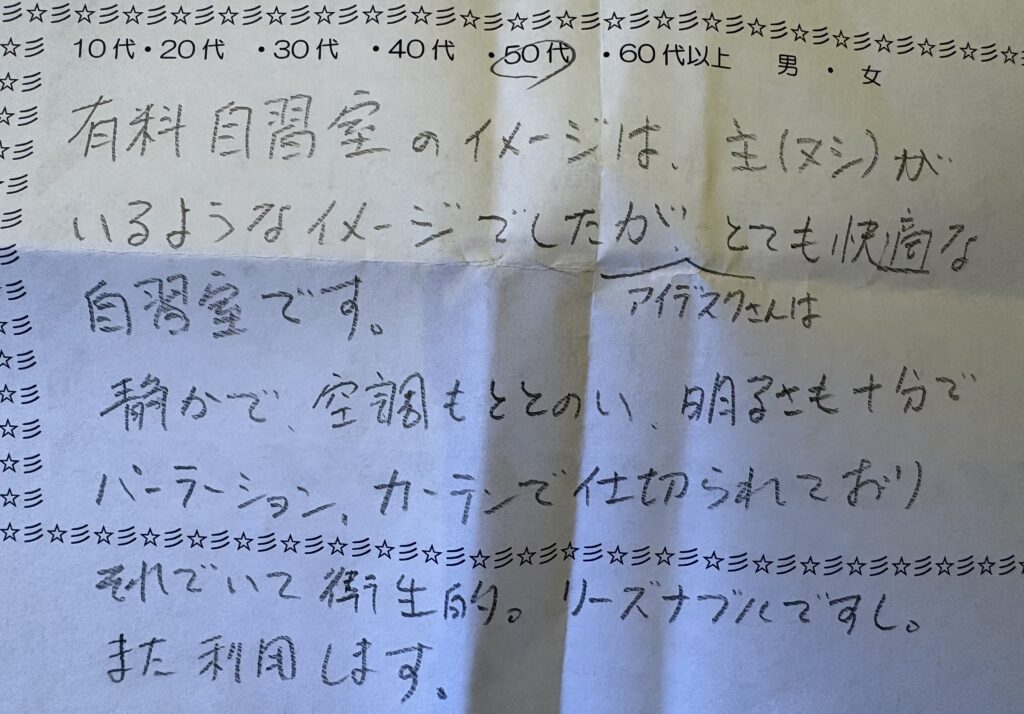 10代・20代 ・30代 ・40代 ・50代 ・60代以上 男 ・ 女
有料自習室のイメージは、主(ヌシ)が
いるようなイメージでしたが、とても快適な
アイデスクさんは
自習室です。
静かで、空調もととのい、明るさも十分で
パーテーション、カーテンで仕切られており
それでいて衛生的。リーズナブルですし。
また利用します。